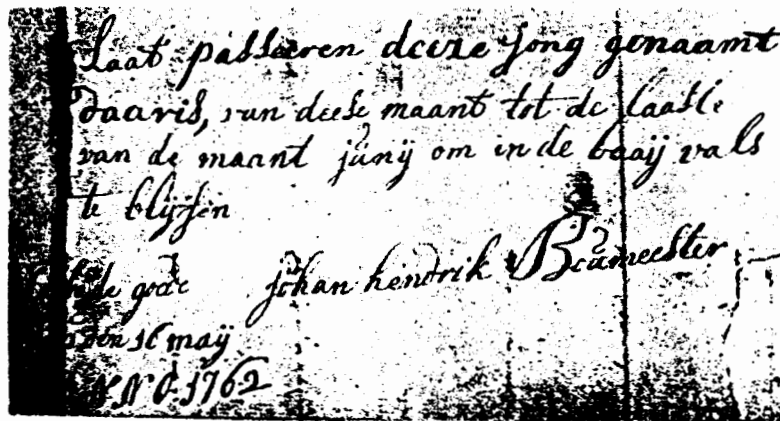 Laat passeeren deeze jong genaamt
daaris, van deese maant tot de laaste
van de maant junij om in de baaij vals
te blijfen
johan hendrik Beumeester
den 16 maij
NNO 1762